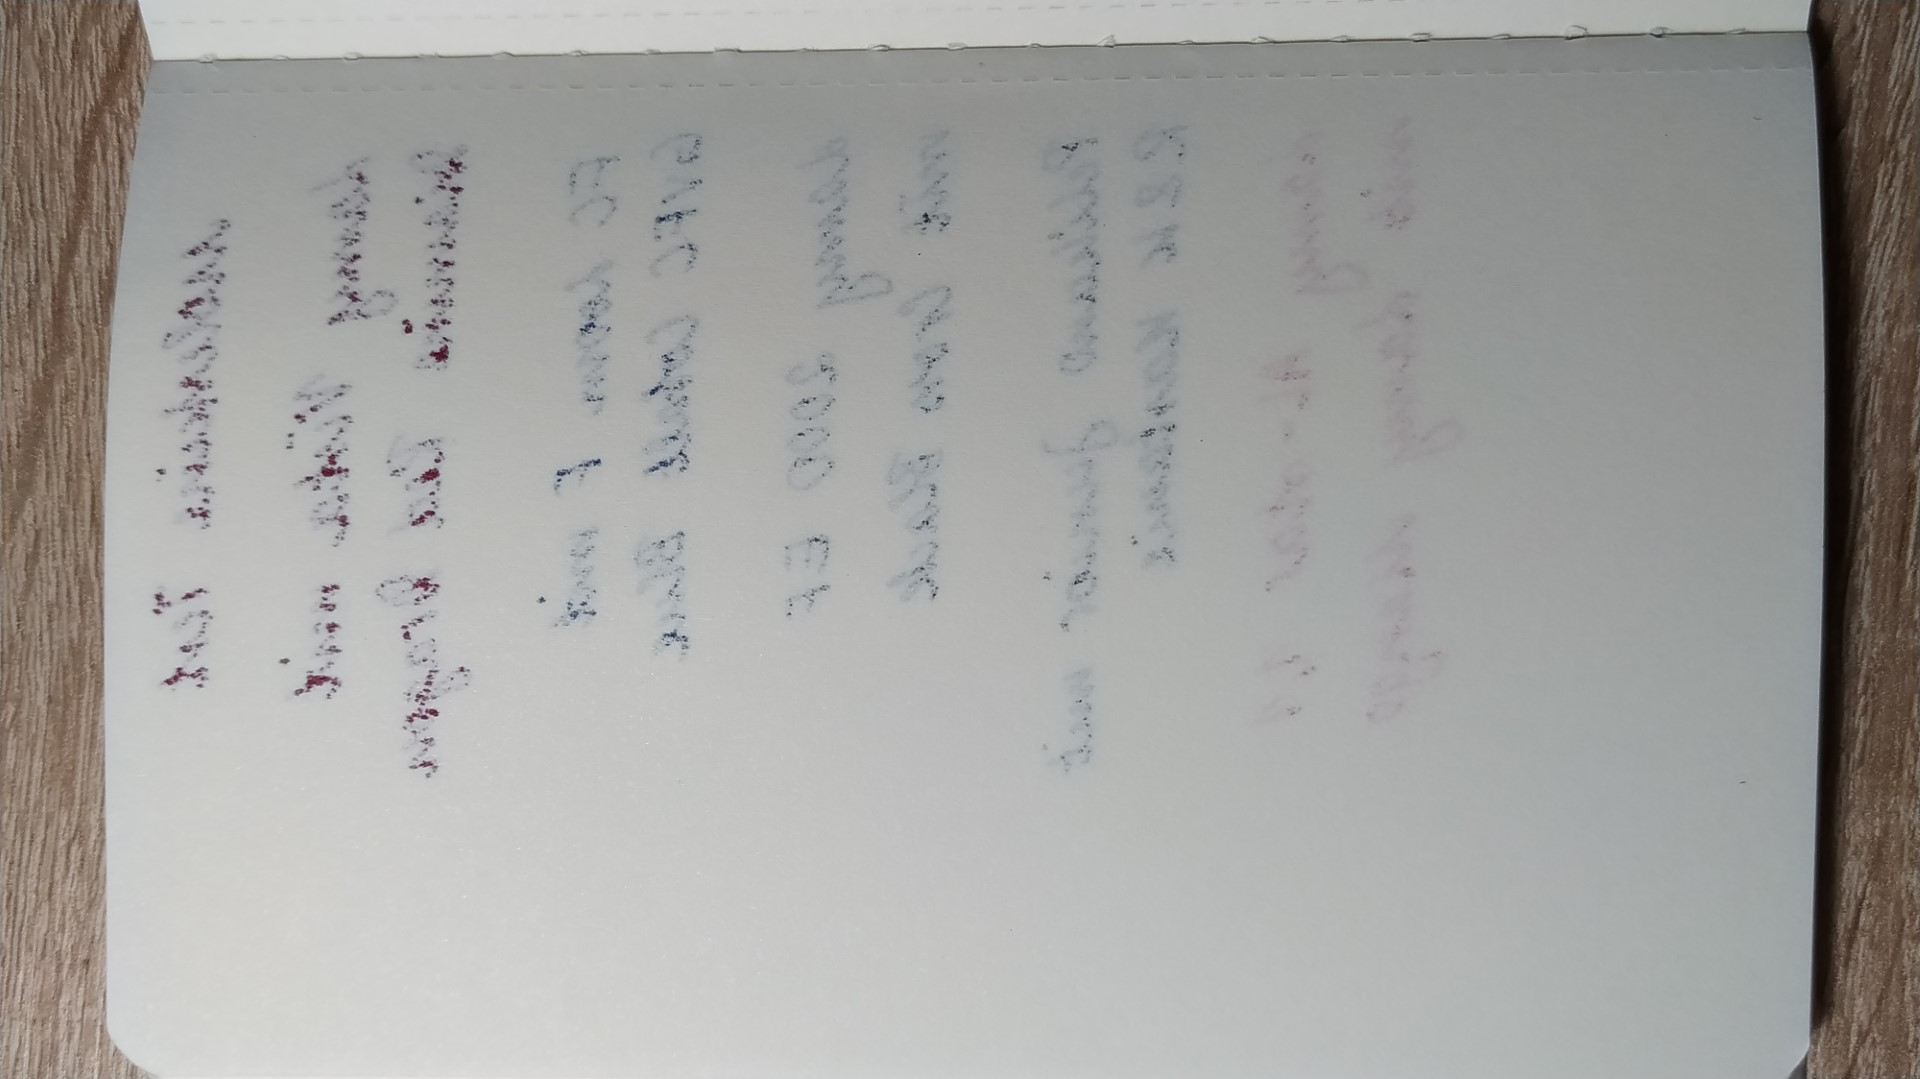 Moleskine Test
Lamy Vista mit
Diamine Red Dragon
FC Loom F mit
GVFC Cobalt Blue
Lamy 2000 EF
mit Cross Black
Pelikano Junior mit
R&K
Lamy Al-star 1,1
mit Lamy Mango